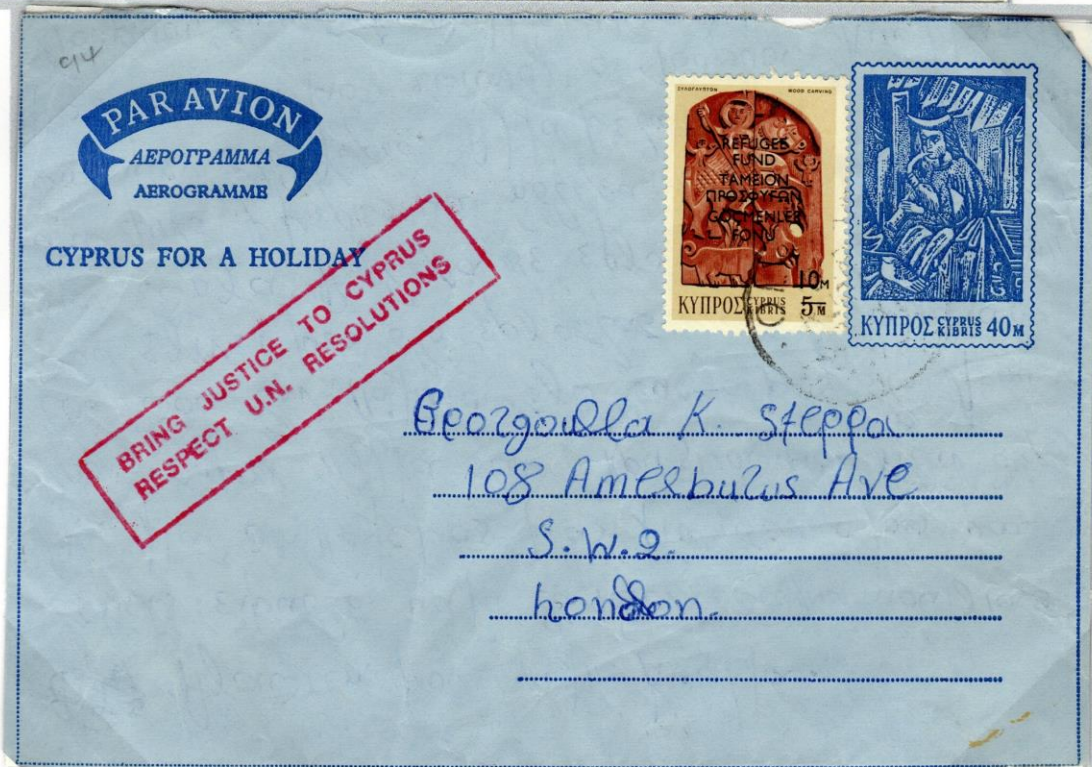 94
PAR AVION
ΑΕΡΟΓΡΑΜΜΑ
AEROGRAMME
CYPRUS FOR A HOLIDAY
BRING JUSTICE TO CYPRUS
RESPECT U.N. RESOLUTIONS
ΞΥΛΟΓΛΥΠΤΟΝ WOOD CARVING
REFUGEE
FUND
ΤΑΜΕΙΟΝ
ΠΡΟΣΦΥΓΩΝ
GÖÇMENLER
FONU
10M
ΚΥΠΡΟΣ CYPRUS KIBRIS 5M
ΚΥΠΡΟΣ CYPRUS KIBRIS 40M
Georgoulla K. Steppa
108 Amesbutus Ave
S.W.2.
London.